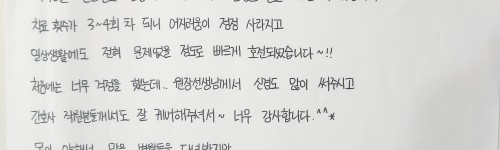 치료 횟수가 3~4회 차 되니 어지러움이 점점 사라지고
일상생활에도 전혀 문제없을 정도로 빠르게 호전되었습니다~!!
처음에는 너무 걱정을 했는데.. 원장선생님께서 신경도 많이 써주시고
간호사 직원분들께서도 잘 케어해주셔서~ 너무 감사합니다.^^*